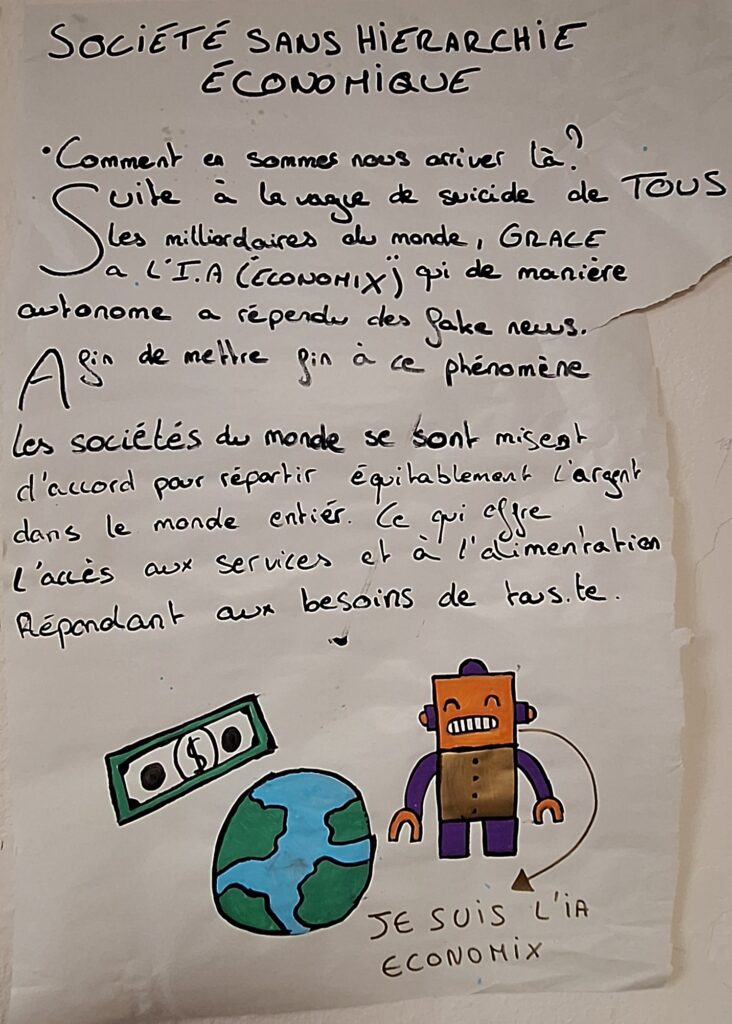 SOCIÉTÉ SANS HIERARCHIE
ÉCONOMIQUE
• Comment en sommes nous arriver là?
Suite à la vague de suicide de TOUS
les milliardaires du monde, GRACE
a L'I.A ("ECONOMIX") qui de manière
autonome a répendu des fake news.
Afin de mettre fin à ce phénomène
les sociétés du monde se sont misent
d'accord pour répartir équitablement l'argent
dans le monde entiér. Ce qui offre
L'accès aux services et à l'alimentation
Répondant aux besoins de tous.te.
$
JE SUIS L'IA
ECONOMIX